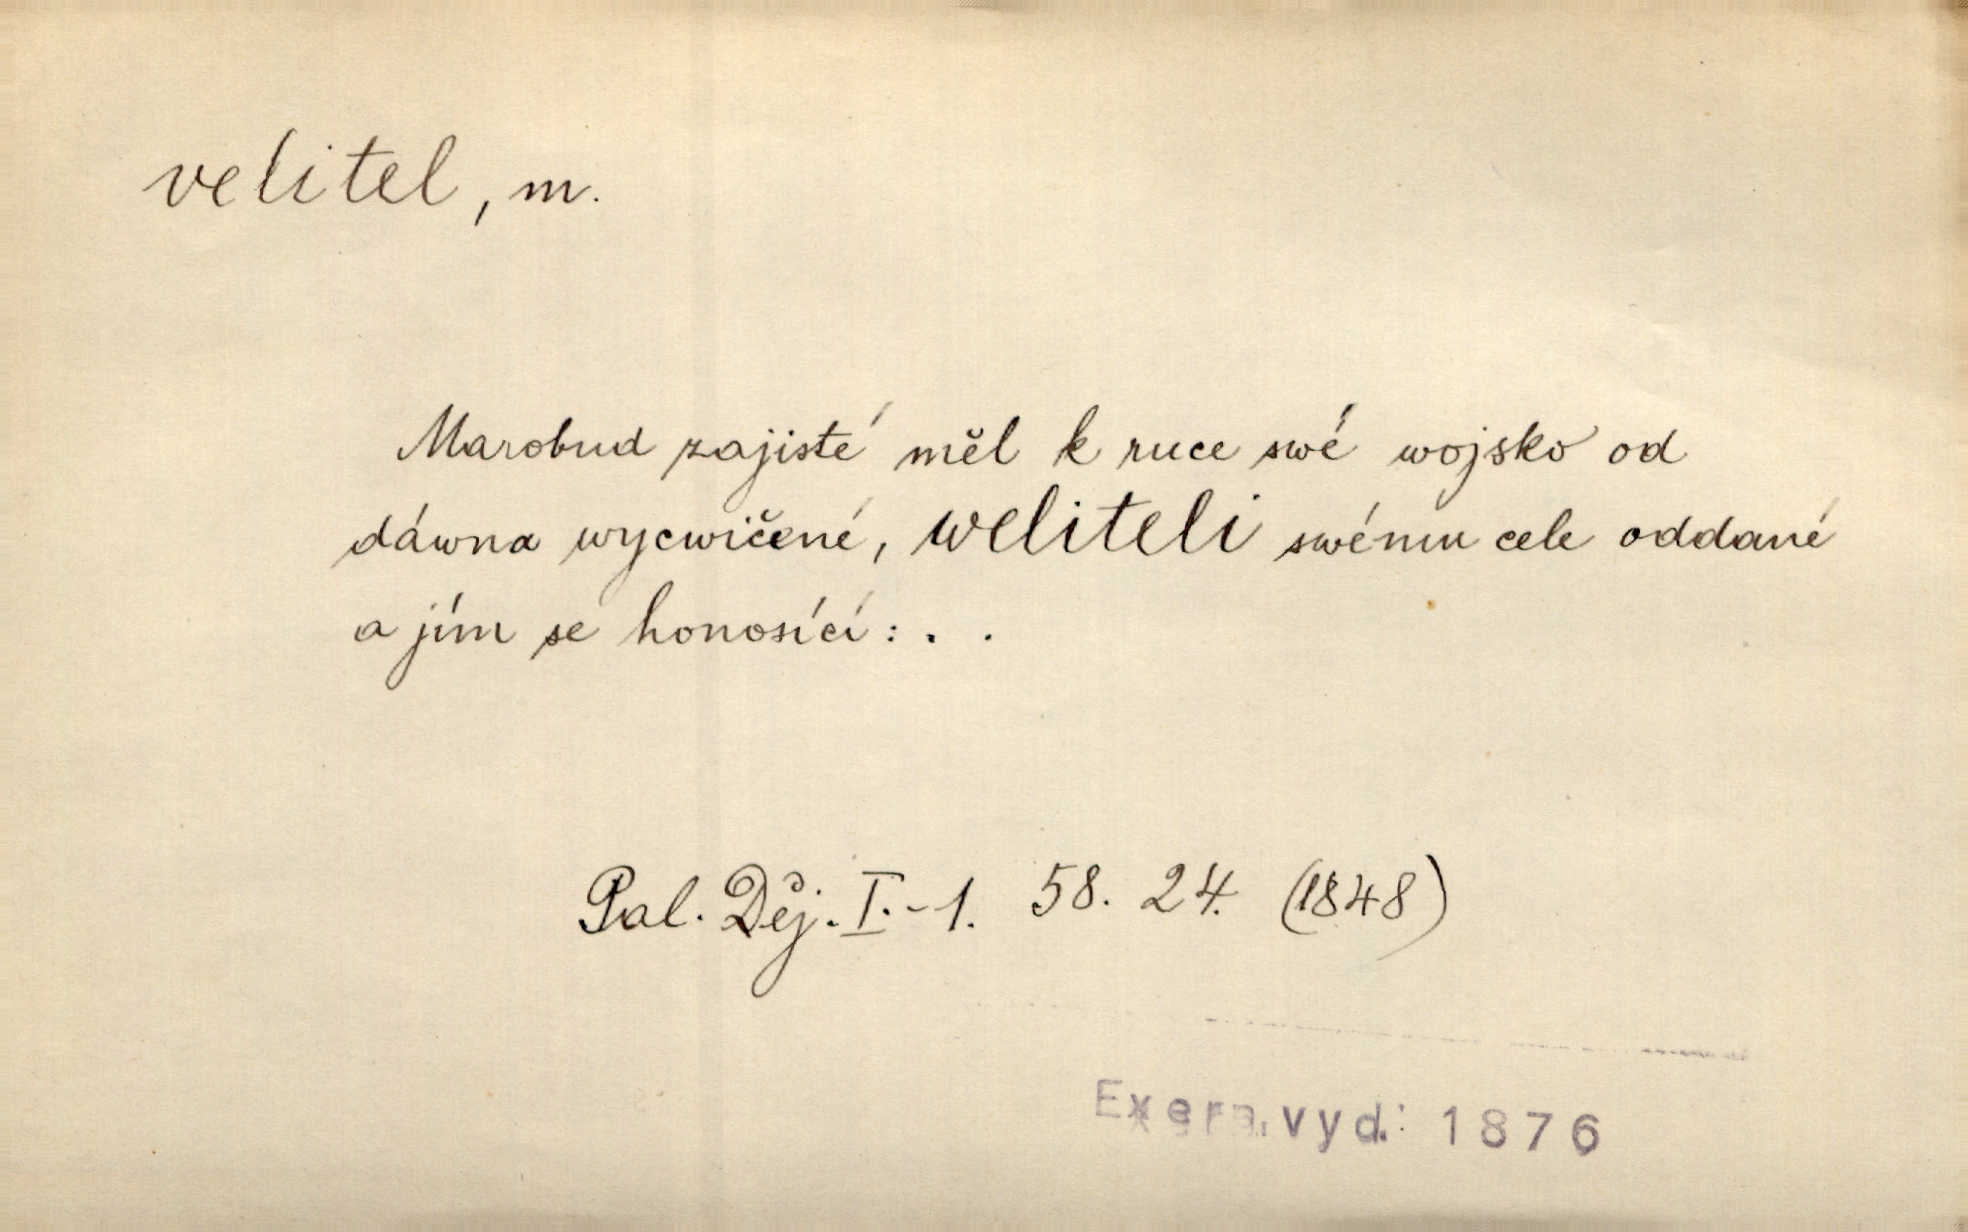 velitel, m.
Marobud zajisté měl k ruce swé wojsko od
dáwna wycwičené, weliteli swému cele oddané
a jím se honosící: . .
Pal. Děj. I.-1. 58. 24. (1848)
vyd.: 1876